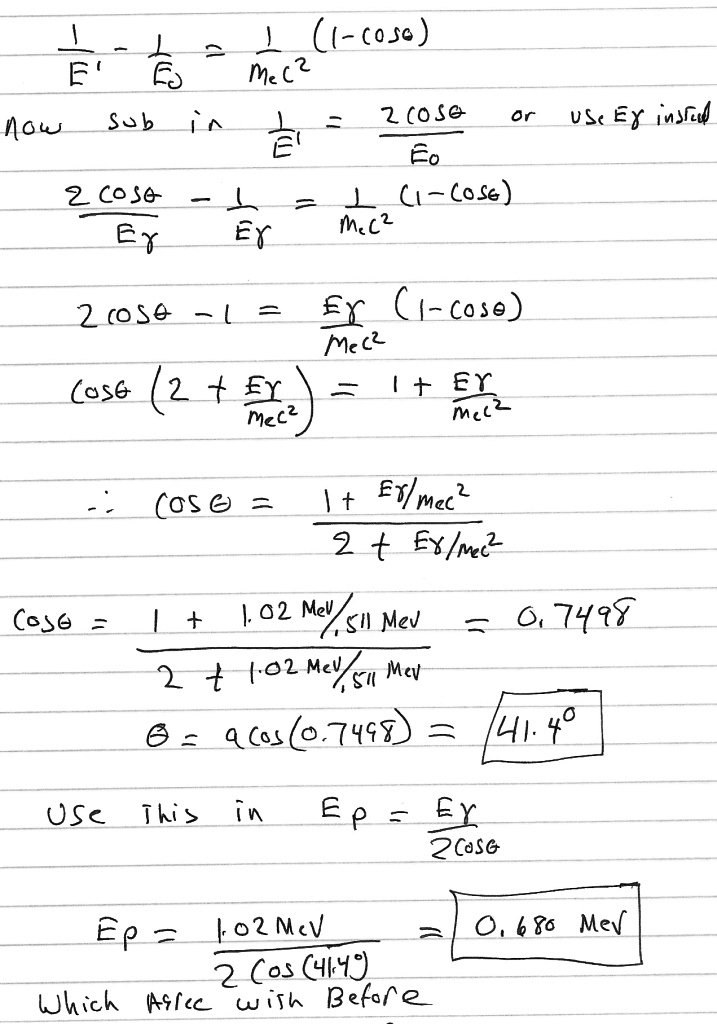 1/E' - 1/E0 = 1/MeC² (1-cosθ)
Now sub in 1/E' = 2cosθ/E0 or use Eγ instead
2cosθ/Eγ - 1/Eγ = 1/MeC² (1-cosθ)
2cosθ - 1 = Eγ/MeC² (1-cosθ)
cosθ (2 + Eγ/mec²) = 1 + Eγ/mec²
∴ cosθ = (1 + Eγ/mec²)/(2 + Eγ/mec²)
cosθ = (1 + 1.02 MeV/.511 MeV)/(2 + 1.02 MeV/.511 MeV) = 0.7498
θ = acos(0.7498) = 41.4°
Use This in Ep = Eγ/2cosθ
Ep = 1.02 MeV/2 cos(41.4°) = 0.680 MeV
Which Agree with Before